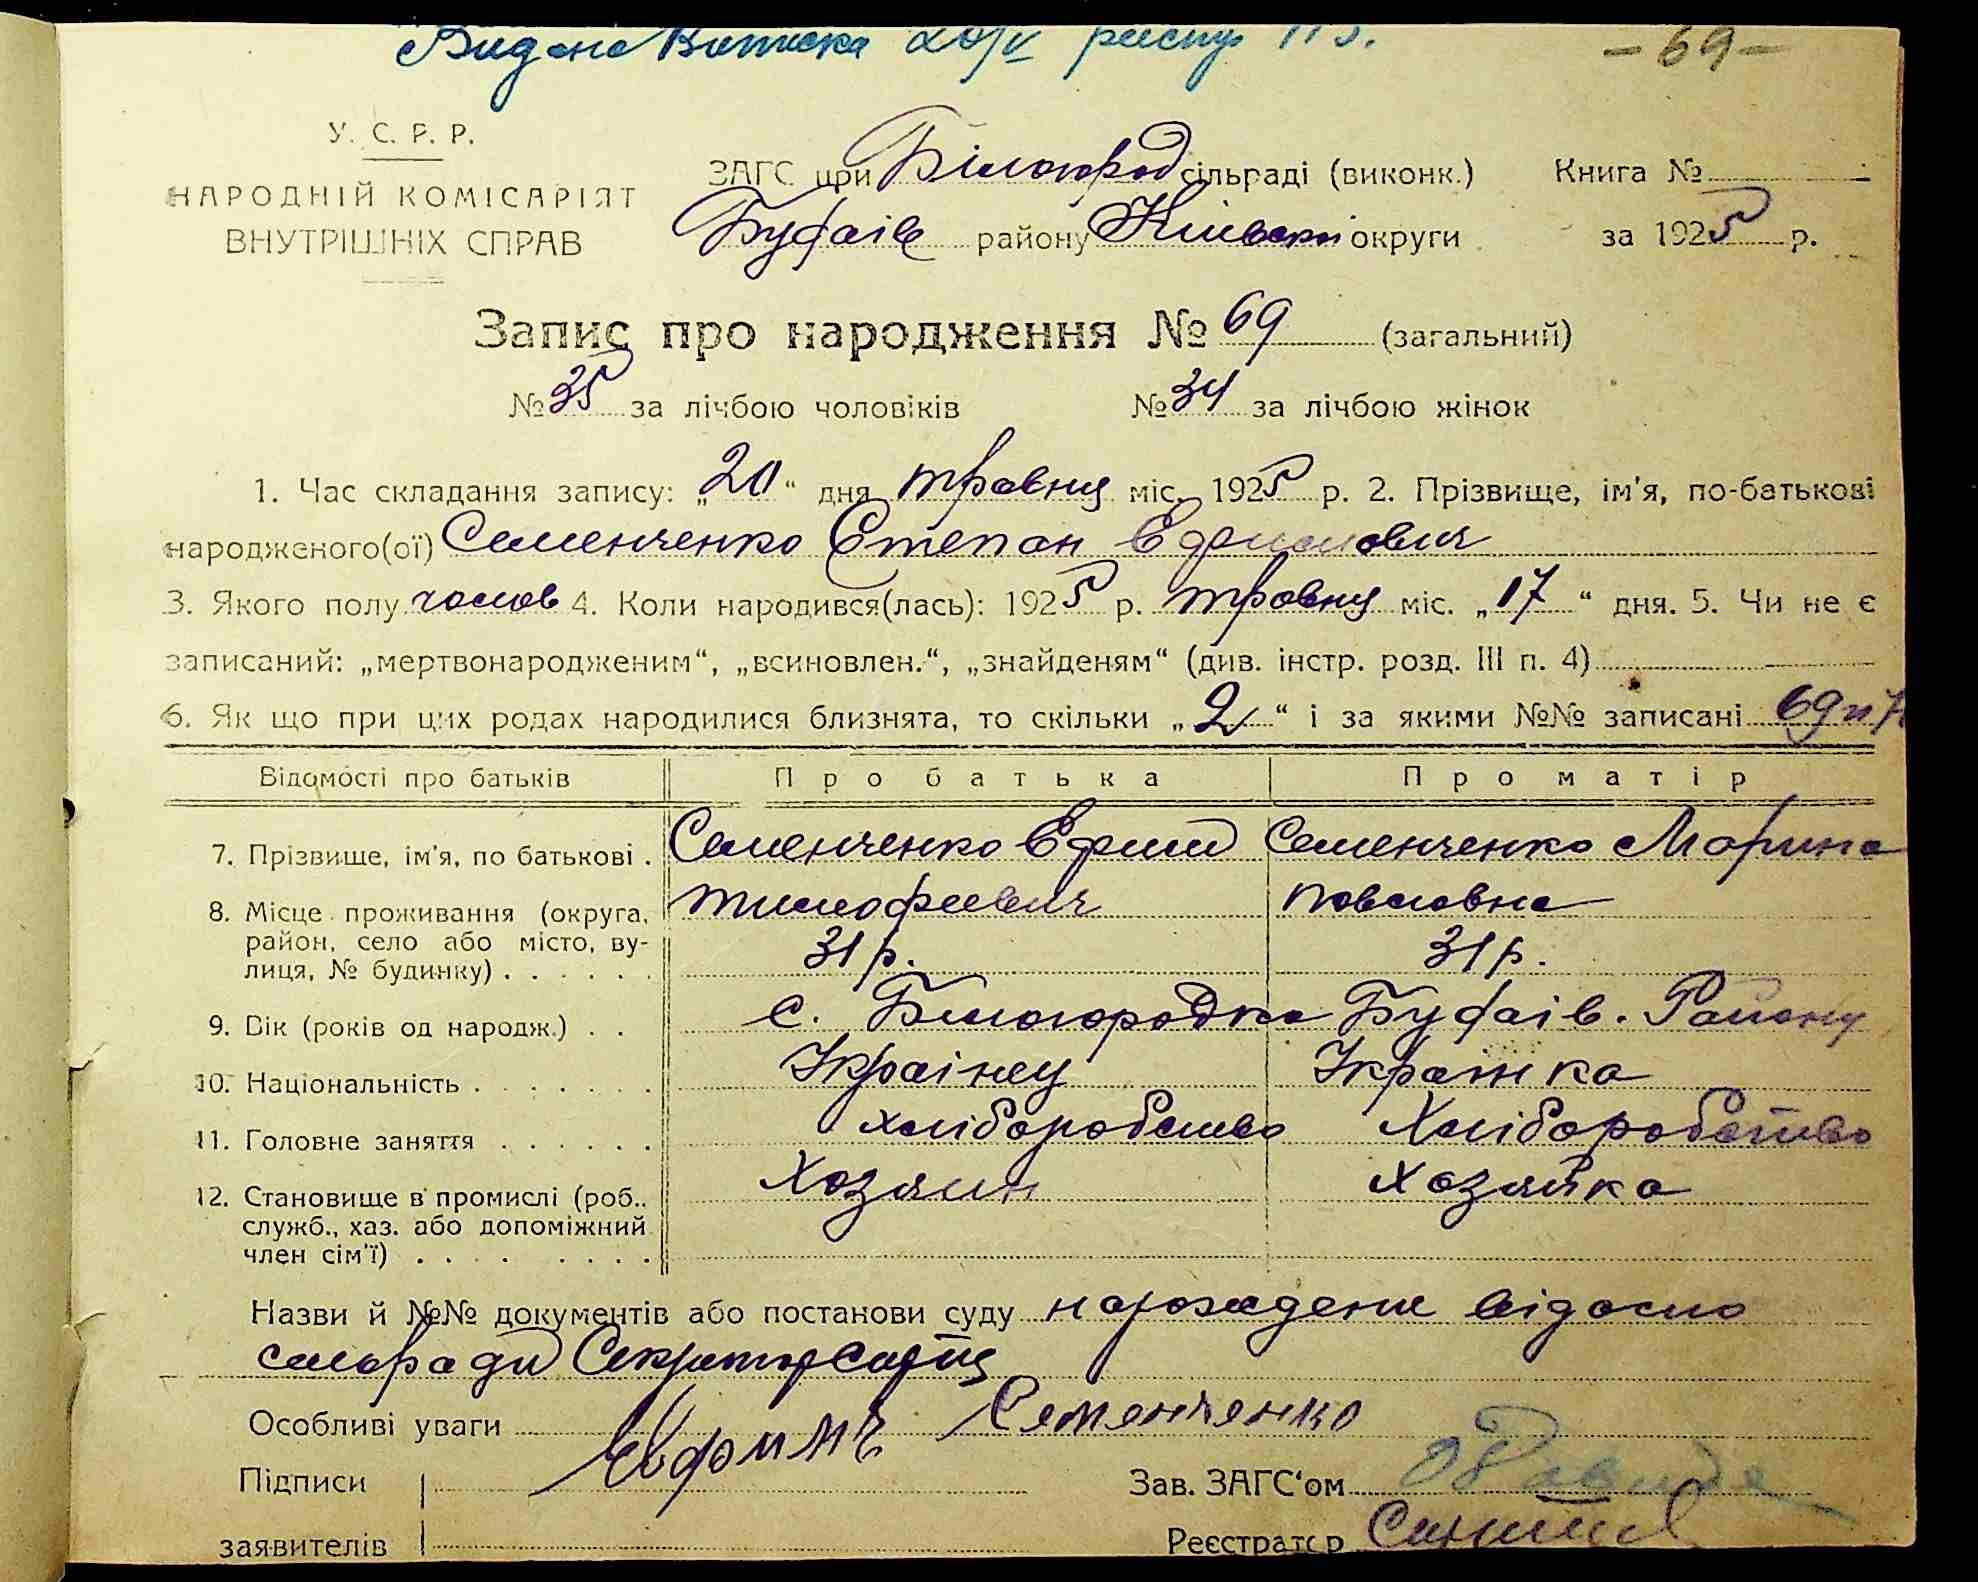 Видана Виписка 20/V реєстр
– 69 –
У. С. Р. Р.
НАРОДНІЙ КОМІСАРІЯТ
ВНУТРІШНІХ СПРАВ
ЗАГС при Білогород сільраді (виконк.) Книга №
Буфаів району Київскої округи за 1925 р.
Запис про народження № 69 (загальний)
№ 35 за лічбою чоловіків № 34 за лічбою жінок
1. Час складання запису: „20“ дня травня міс. 1925 р. 2. Прізвище, ім'я, по-батькові
народженого(ої) Семенченко Степан Ефимович
3. Якого полу чолов 4. Коли народився(лась): 1925 р. травня міс. „17“ дня. 5. Чи не є
записаний: „мертвонародженим“, „всиновлен.“, „знайденям“ (див. інстр. розд. III п. 4)
6. Як що при цих родах народилися близнята, то скільки „2“ і за якими №№ записані 69 и
Відомості про батьків Про батька Про матір
7. Прізвище, ім'я, по батькові . Семенченко Ефим Семенченко Марина
8. Місце проживання (округа, Тимофеевич Павловна
район, село або місто, ву-
лиця, № будинку) . . . . . . 31 р. 31 р.
9. Вік (років од народж.) . . с. Билогородка Буфаів. Району
10. Національність . . . . . . . Українец Українка
11. Головне заняття . . . . . . хліборобство Хліборобство
12. Становище в промислі (роб., Хозяин Хозяйка
служб., хаз. або допоміжний
член сім'ї) . . . . . . . .
Назви й №№ документів або постанови суду нарождение відомо
сельради
Особливі уваги
Ефомм Семенченко
Підписи Зав. ЗАГС'ом
заявителів Реєстратор